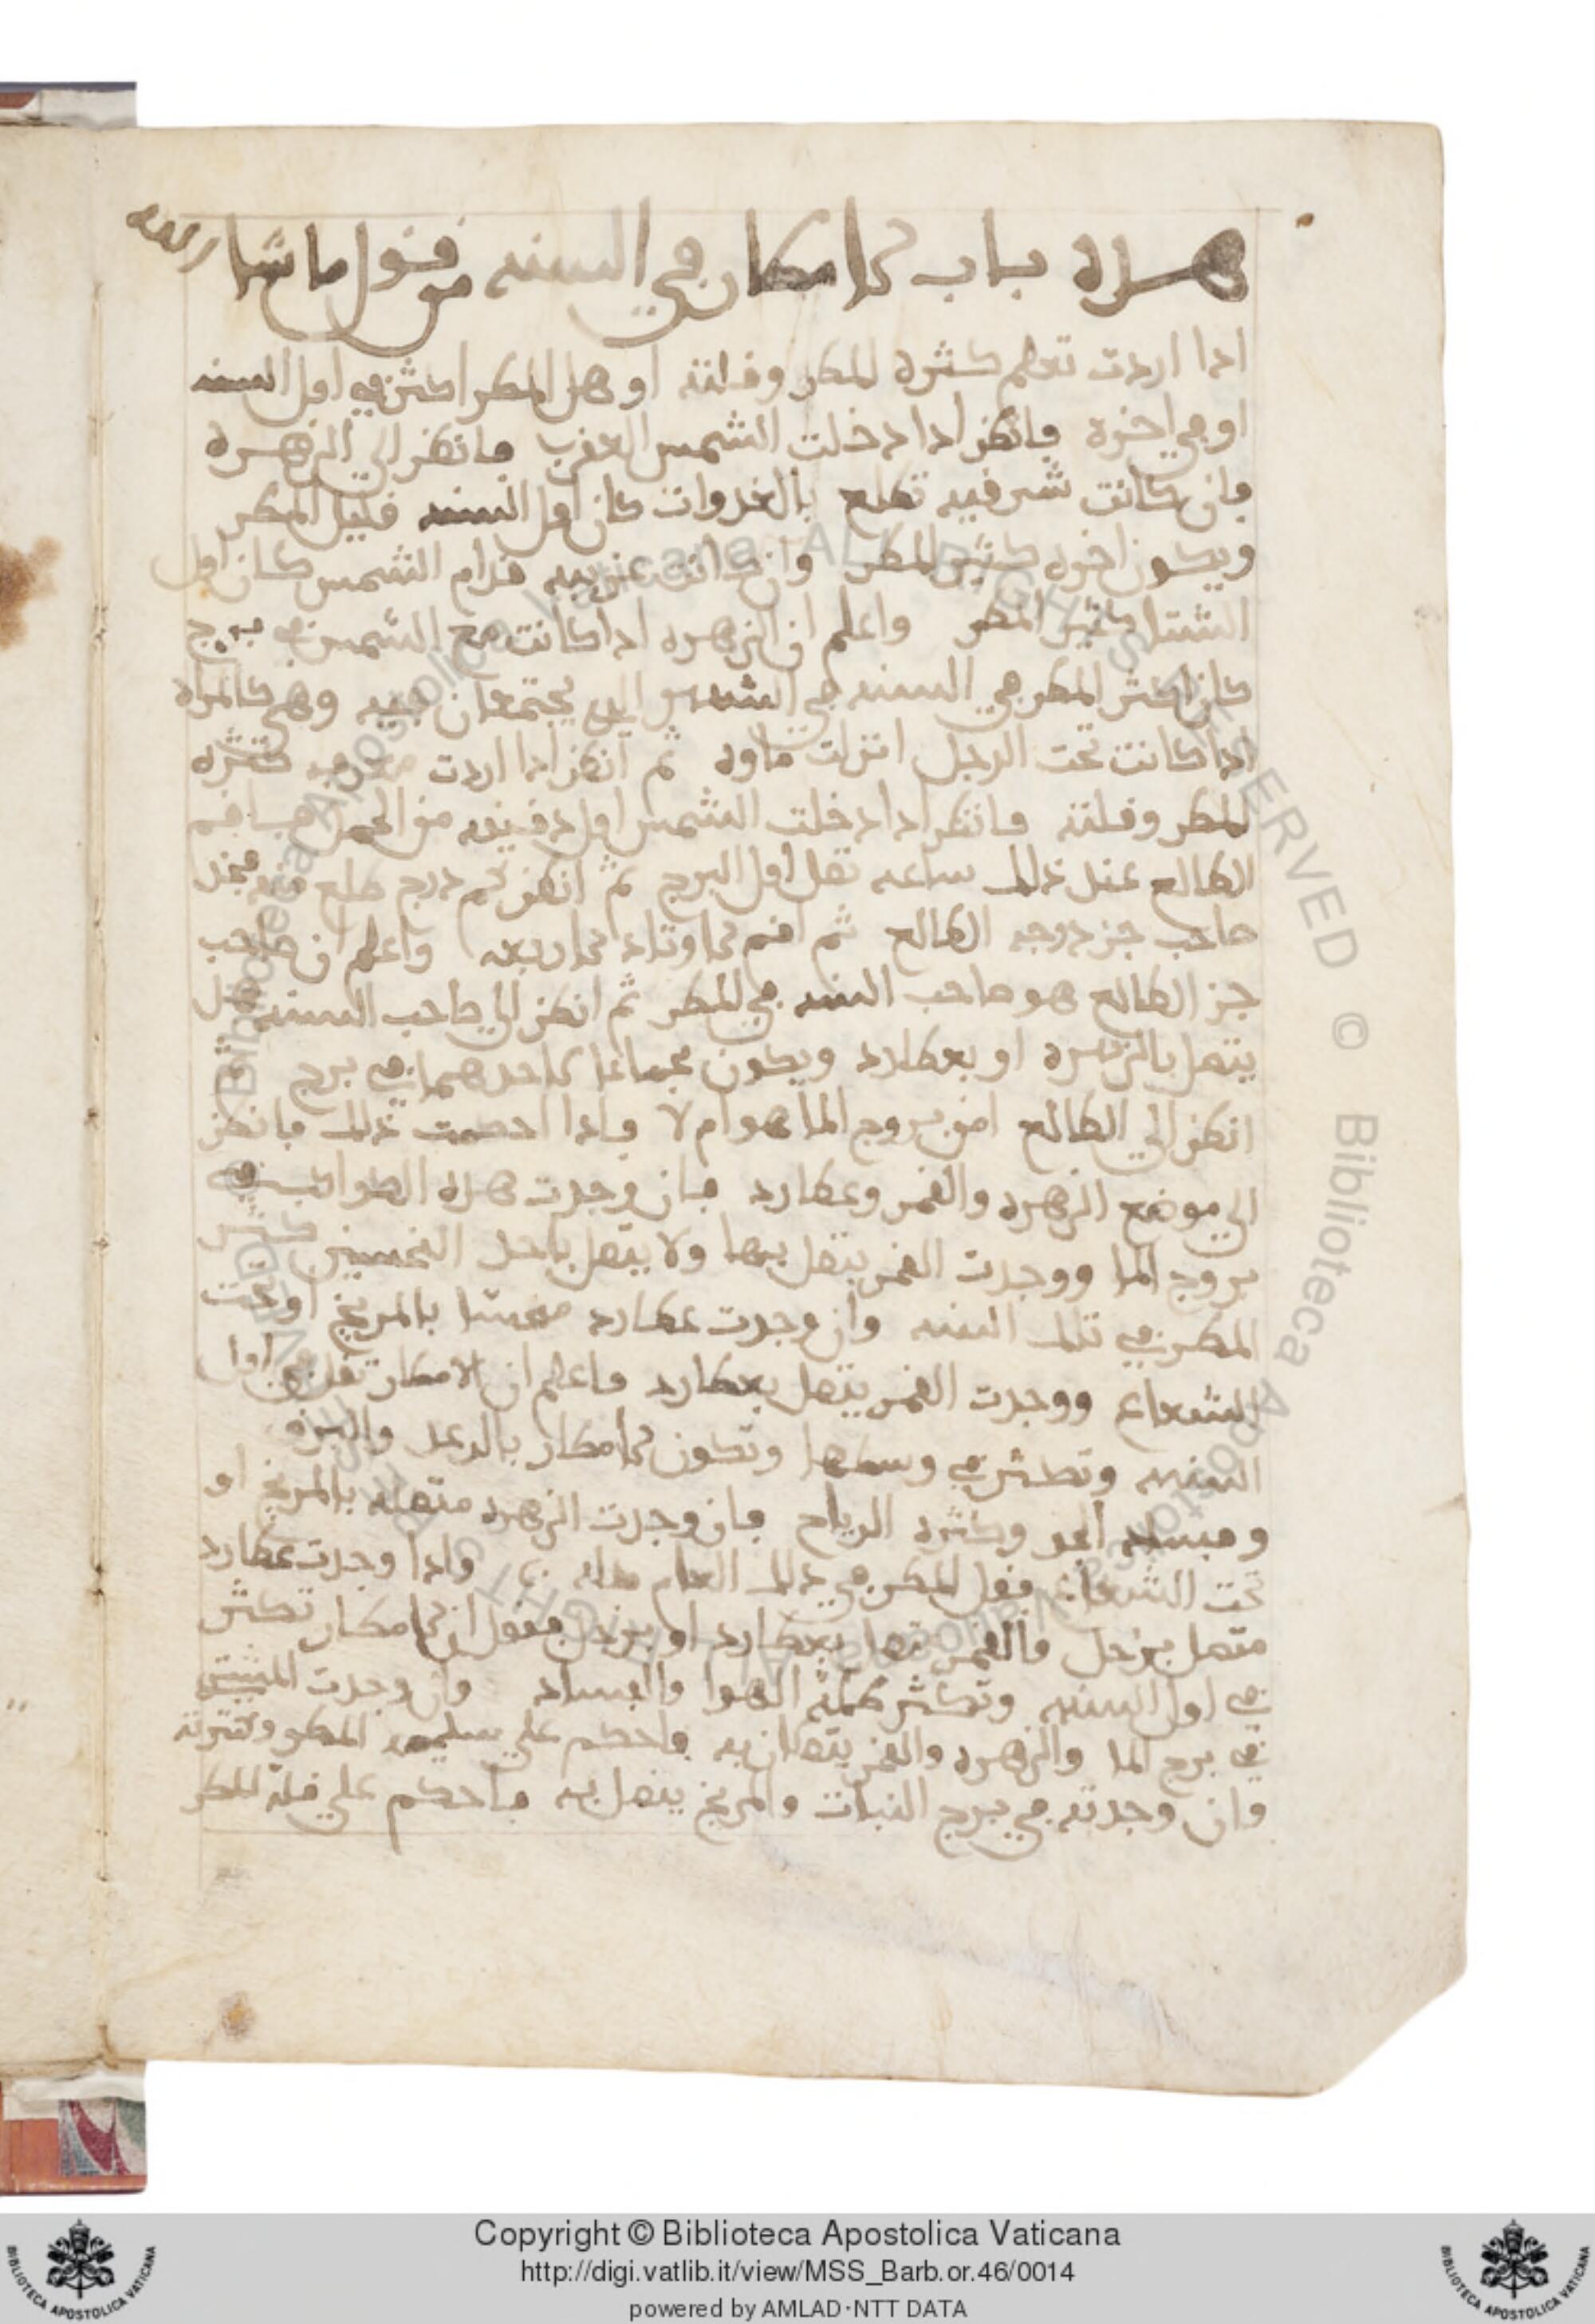 هذه باب الامطار في السنه من قول ما شا الله
اذا اردت تعلم كثرة المطر وقلته او هل المطر اكثر في اول السنه
او في اخره فانظر اذا دخلت الشمس العقرب فانظر الي الزهرة
فان كانت شرقيه تطلع بالغدوات كان اول السنه قليل المطر
ويكون اخره كثير المطر وان كانت غربيه قدام الشمس كان اول
الشتا كثير المطر واعلم ان الزهره اذا كانت مع الشمس في برج
كان اكثر المطر في السنه في الشهر الذي يجتمعان فيه وهي كالمراه
اذا كانت تحت الرجل انزلت ماوه ثم انظر اذا اردت كثره
المطر وقلته فانظر اذا دخلت الشمس اول دقيقه من الحمل فاقم
الطالع عند ذلك ساعه تحل اول البرج ثم انظر كم درج طلع منه فخذ
صاحب جز درجه الطالع ثم اقم الاوتاد الاربعه واعلم ان صاحب
جز الطالع هو صاحب السنه في المطر ثم انظر الي صاحب السنه هل
يتصل بالزهره او بعطارد ويكون مجامعا لاحدهما في برج
انظر الي الطالع امن بروج الما هو ام لا فاذا احكمت ذلك فانظر
الي موضع الزهره والقمر وعطارد فان وجدت هذه الكواكب في
بروج الما ووجدت القمر يتصل بها ولا يتصل باحد النحسين كثر
المطر في تلك السنه وان وجدت عطارد منحسا بالمريخ او تحت
الشعاع ووجدت القمر يتصل بعطارد فاعلم ان الامطار تقل في اول
السنه وتكثر في وسطها وتكون الامطار بالرعد والبرق
وفساد الجو وكثره الرياح فان وجدت الزهره متصله بالمريخ او
تحت الشعاع فقل المطر في ذلك العام واذا وجدت عطارد
متصل بزحل والقمر بعطارد او بزحل فقول ان الامطار تكثر
في اول السنه وتكثر ظلمة الهوا والفساد وان وجدت المشتري
في برج الما والزهره والقمر يتصلان به فاحكم علي المطر وكثرته
وان وجدته في برج النبات والمريخ يتصل به فاحكم علي قلة المطر
Biblioteca Apostolica Vaticana ALL RIGHTS RESERVED © Biblioteca Apostolica Vaticana
Copyright © Biblioteca Apostolica Vaticana
http://digi.vatlib.it/view/MSS_Barb.or.46/0014
powered by AMLAD·NTT DATA
BIBLIOTECA APOSTOLICA VATICANA
BIBLIOTECA APOSTOLICA VATICANA